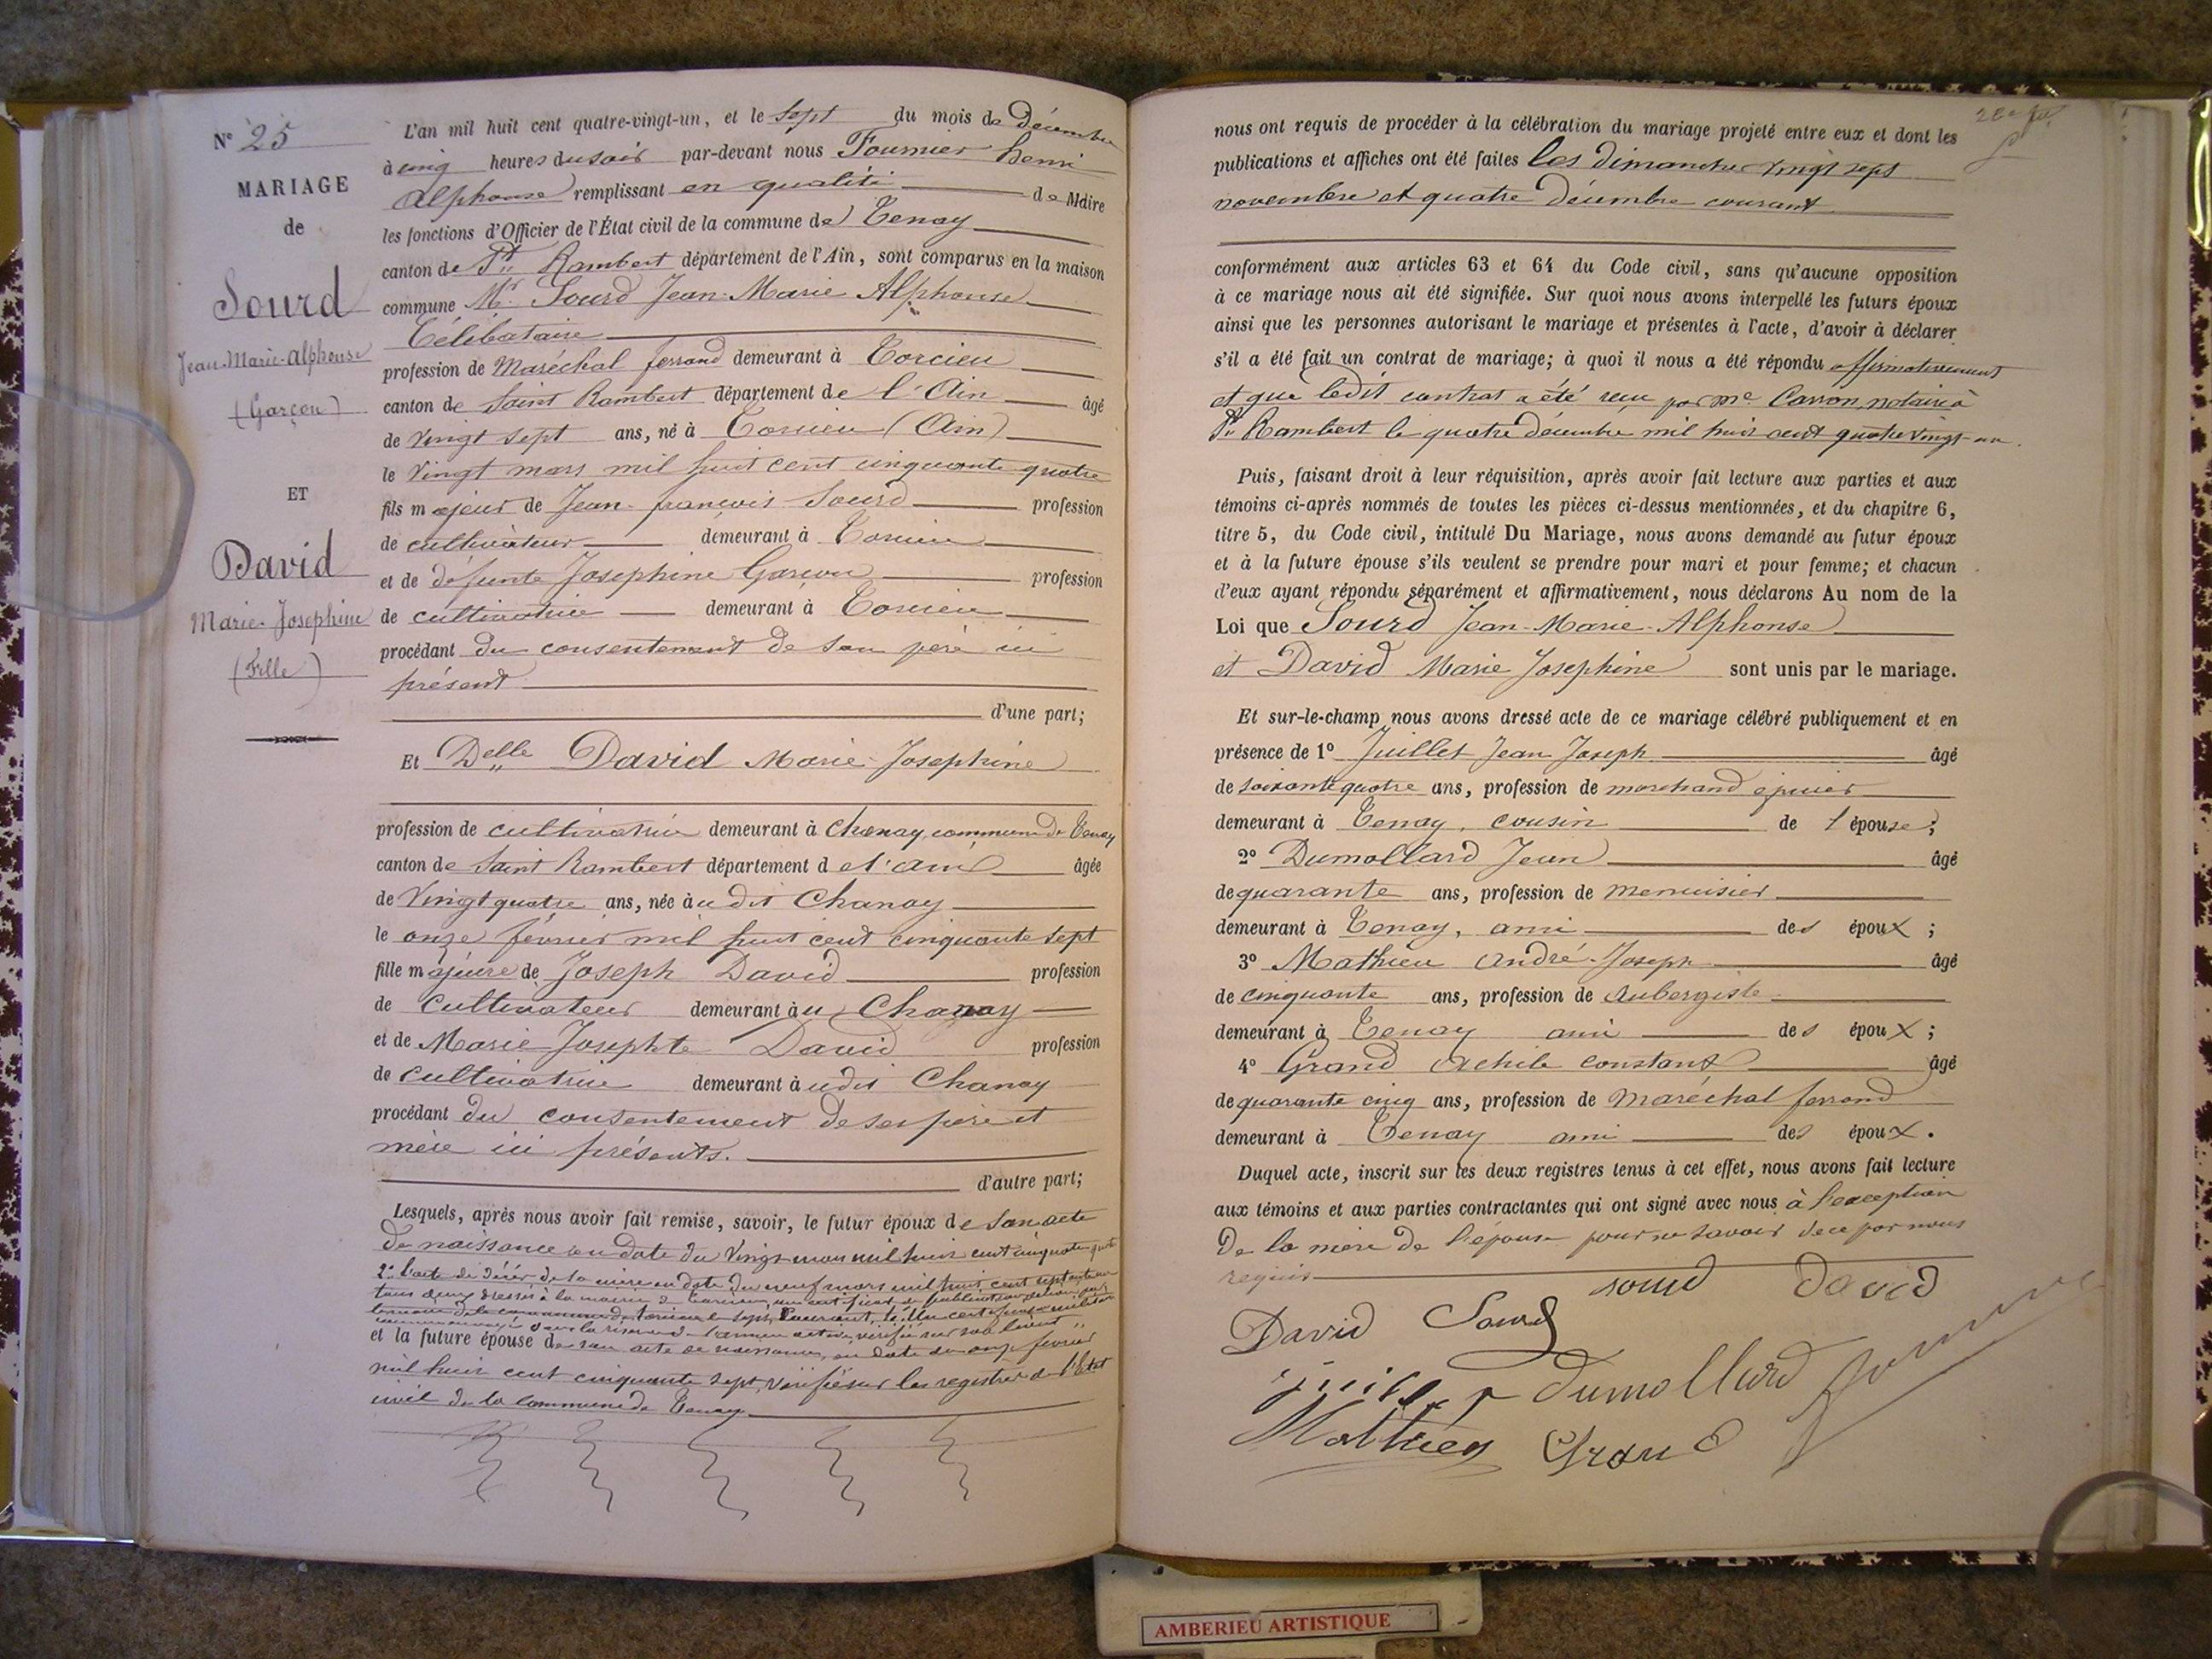 N° 25
MARIAGE
de
Sourd
Jean-Marie-Alphonse
(Garçon)
ET
David
Marie-Josephine
(Fille)
L'an mil huit cent quatre-vingt-un, et le sept du mois de décembre
à cinq heures du soir par-devant nous Fournier henri
Alphonse remplissant en qualité de Maire
les fonctions d'Officier de l'État civil de la commune de Tenay
canton de St Rambert département de l'Ain, sont comparus en la maison
commune Mr Sourd Jean-Marie Alphonse
Célibataire
profession de Maréchal ferrand demeurant à Torcieu
canton de Saint Rambert département de l'Ain âgé
de Vingt sept ans, né à Torcieu (Ain)
le Vingt mars mil huit cent cinquante quatre
fils majeur de Jean-françois Sourd profession
de cultivateur demeurant à Torcieu
et de défunte Josephine Garçon profession
de cultivatrice demeurant à Torcieu
procédant du consentement de son père ici
présent
d'une part;
Et Delle David Marie-Josephine
profession de cultivatrice demeurant à Chanay, commune de Tenay
canton de Saint Rambert département de l'ain âgée
de Vingt quatre ans, née audit Chanay
le onze février mil huit cent cinquante sept
fille majeure de Joseph David profession
de cultivateur demeurant au Chanay
et de Marie Josephte David profession
de cultivatrice demeurant audit Chanay
procédant du consentement de ses père et
mère ici présents.
d'autre part;
Lesquels, après nous avoir fait remise, savoir, le futur époux de son acte
de naissance en date du Vingt mars mil huit cent cinquante quatre
2° l'acte de décès de la mère en date du neuf mars mil huit cent septante
tous deux dressés à la mairie de Torcieu, un certificat de publication délivré par
et la future épouse de son acte de naissance, en date du onze février
mil huit cent cinquante sept, vérifié sur les registres de l'Etat
civil de la commune de Tenay
nous ont requis de procéder à la célébration du mariage projeté entre eux et dont les
publications et affiches ont été faites les dimanches vingt sept
novembre et quatre décembre courant
conformément aux articles 63 et 64 du Code civil, sans qu'aucune opposition
à ce mariage nous ait été signifiée. Sur quoi nous avons interpellé les futurs époux
ainsi que les personnes autorisant le mariage et présentes à l'acte, d'avoir à déclarer
s'il a été fait un contrat de mariage; à quoi il nous a été répondu affirmativement
et que ledit contrat a été reçu par Me Carron, notaire à
St Rambert le quatre décembre mil huit cent quatre vingt-un.
Puis, faisant droit à leur réquisition, après avoir fait lecture aux parties et aux
témoins ci-après nommés de toutes les pièces ci-dessus mentionnées, et du chapitre 6,
titre 5, du Code civil, intitulé Du Mariage, nous avons demandé au futur époux
et à la future épouse s'ils veulent se prendre pour mari et pour femme; et chacun
d'eux ayant répondu séparément et affirmativement, nous déclarons Au nom de la
Loi que Sourd Jean-Marie-Alphonse
et David Marie Josephine sont unis par le mariage.
Et sur-le-champ nous avons dressé acte de ce mariage célébré publiquement et en
présence de 1° Juillet Jean Joseph âgé
de soixante quatre ans, profession de marchand épicier
demeurant à Tenay, cousin de l'épouse;
2° Dumollard Jean âgé
de quarante ans, profession de menuisier
demeurant à Tenay, ami des époux;
3° Mathieu André-Joseph âgé
de cinquante ans, profession de Aubergiste
demeurant à Tenay ami des époux;
4° Grand Achile constant âgé
de quarante cinq ans, profession de Maréchal ferrand
demeurant à Tenay ami des époux.
Duquel acte, inscrit sur les deux registres tenus à cet effet, nous avons fait lecture
aux témoins et aux parties contractantes qui ont signé avec nous à l'exception
De la mère de l'épouse pour ne savoir de ce par nous
requis
sourd david
David Sourd
juillet dumollard
Mathieu Grand
AMBERIEU ARTISTIQUE